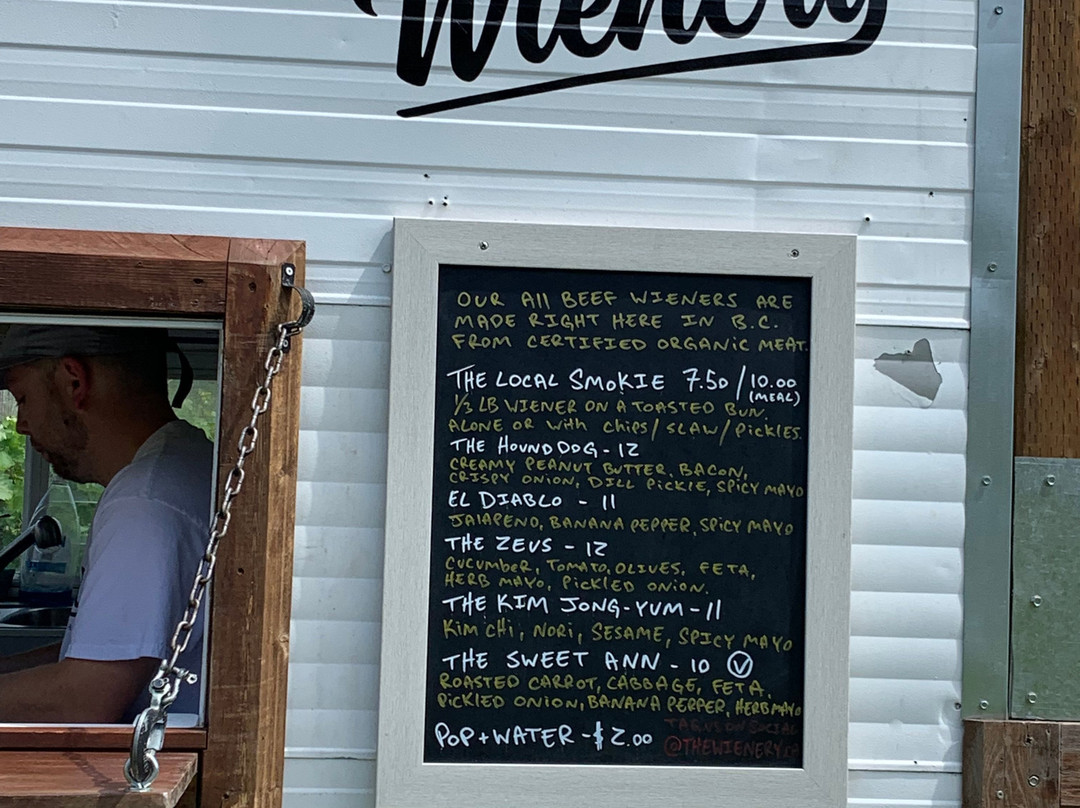 Wienery
OUR All BEEF WIENERS ARE
MADE RIGHT HERE IN B.C.
FROM CERTIFIED ORGANIC MEAT.
THE LOCAL SMOKIE 7.50 / 10.00
(MEAL)
1/3 LB WIENER ON A TOASTED BUN.
ALONE OR with chips / SLAW / Pickles.
THE HOUND DOG - 12
CREAMY PEANUT BUTTER, BACON,
CRISPY ONION, DILL PICKLE, SPICY MAYO
EL DIABLO - 11
JAlAPENO, BANANA PEPPER, SPICY MAYO
THE ZEUS - 12
CUCUMbER, TOMATO, OLIVES, FETA,
HERB MAYO, PICKLED ONION.
THE KIM JONG-YUM - 11
KIM CHI, NORI, SESAME, SPICY MAYO
THE SWEET ANN - 10 V
ROASTED CARROT, CABBAGE, FETA,
PICKLED ONION, BANANA PEPPER, HERB MAYO
POP + WATER - $2.00
TAG US ON SOCIAL
@THEWIENERY.CA